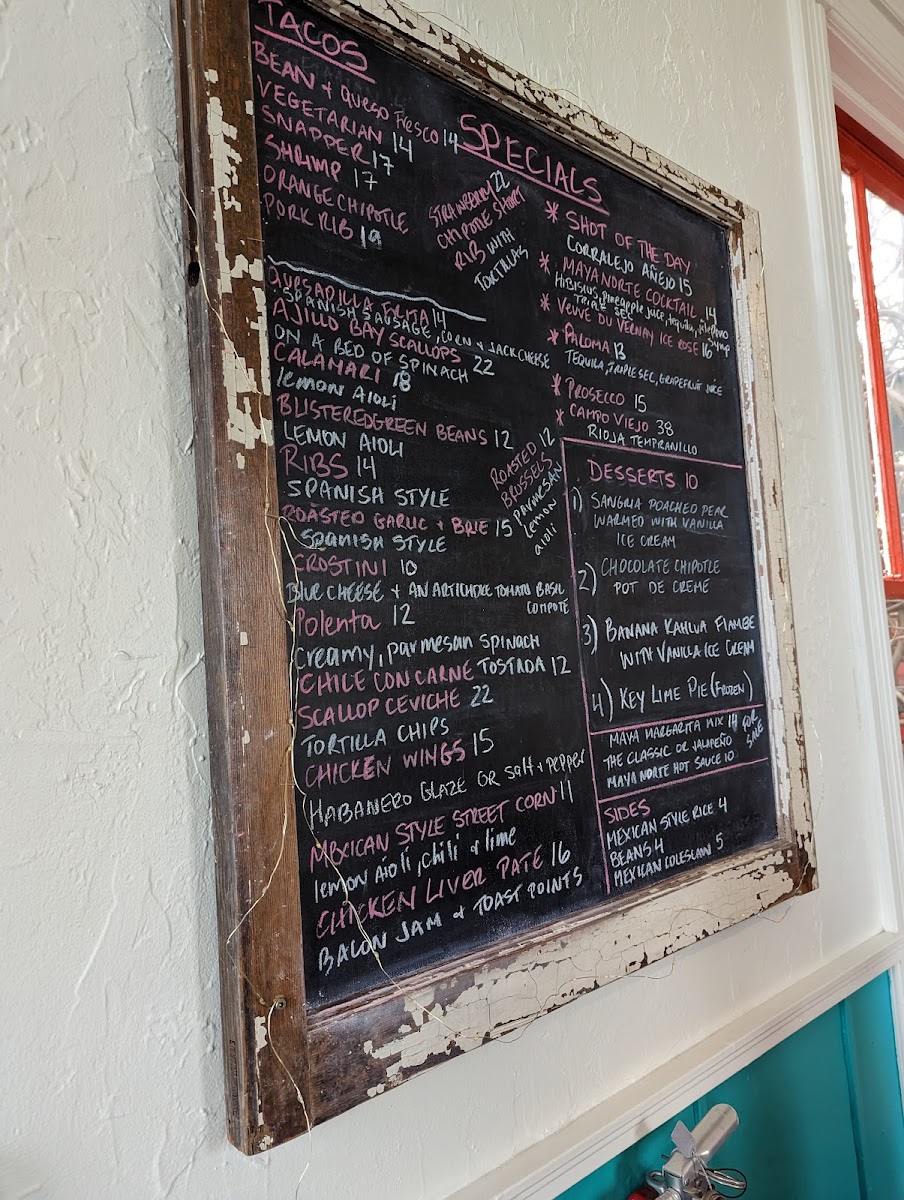 TACOS
BEAN + QUESO FRESCO 14
VEGETARIAN 14
SNAPPER 17
SHRIMP 17
ORANGE CHIPOTLE
PORK RIB 19
QUESADILLA 14
SPANISH SAUSAGE, CORN + JACK CHEESE
AJILLO BAY SCALLOPS 22
ON A BED OF SPINACH
CALAMARI 18
lemon AIOLI
BLISTERED GREEN BEANS 12
LEMON AIOLI
RIBS 14
SPANISH STYLE
ROASTED GARLIC + BRIE 15
SPANISH STYLE
CROSTINI 10
BLUE CHEESE + AN ARTICHOKE TOMATO BASIL
COMPOTE
Polenta 12
creamy, parmesan spinach
CHILE CON CARNE TOSTADA 12
SCALLOP CEVICHE 22
TORTILLA CHIPS
CHICKEN WINGS 15
HABANERO GLAZE OR Salt + pepper
MEXICAN STYLE STREET CORN 11
lemon Aioli, chili + lime
CHICKEN LIVER PATE 16
BACON JAM + TOAST POINTS
SPECIALS
STRAWBERRY 22
CHIPOTLE SHORT
RIB WITH
TORTILLAS
ROASTED 12
BRUSSELS
PARMESAN
lemon
aioli
* SHOT OF THE DAY
CORRALEJO AÑEJO 15
* MAYA NORTE COCKTAIL 14
Hibiscus, pineapple juice, tequila, jalepeno
TRIPLE SEC
* VEUVE DU VERNAY ICE ROSE 16
* PALOMA 13
TEQUILA, TRIPLE SEC, GRAPEFRUIT JUICE
* PROSECCO 15
* CAMPO VIEJO 38
RIOJA TEMPRANILLO
DESSERTS 10
1) SANGRIA POACHED PEAR
WARMED WITH VANILLA
ICE CREAM
2) CHOCOLATE CHIPOTLE
POT DE CREME
3) BANANA KAHLUA FLAMBE
WITH VANILLA ICE CREAM
4) KEY LIME PIE (FROZEN)
MAYA MARGARITA MIX 14 FOR SALE
THE CLASSIC OR JALAPEÑO
MAYA NORTE HOT SAUCE 10
SIDES
MEXICAN STYLE RICE 4
BEANS 4
MEXICAN COLESLAW 5